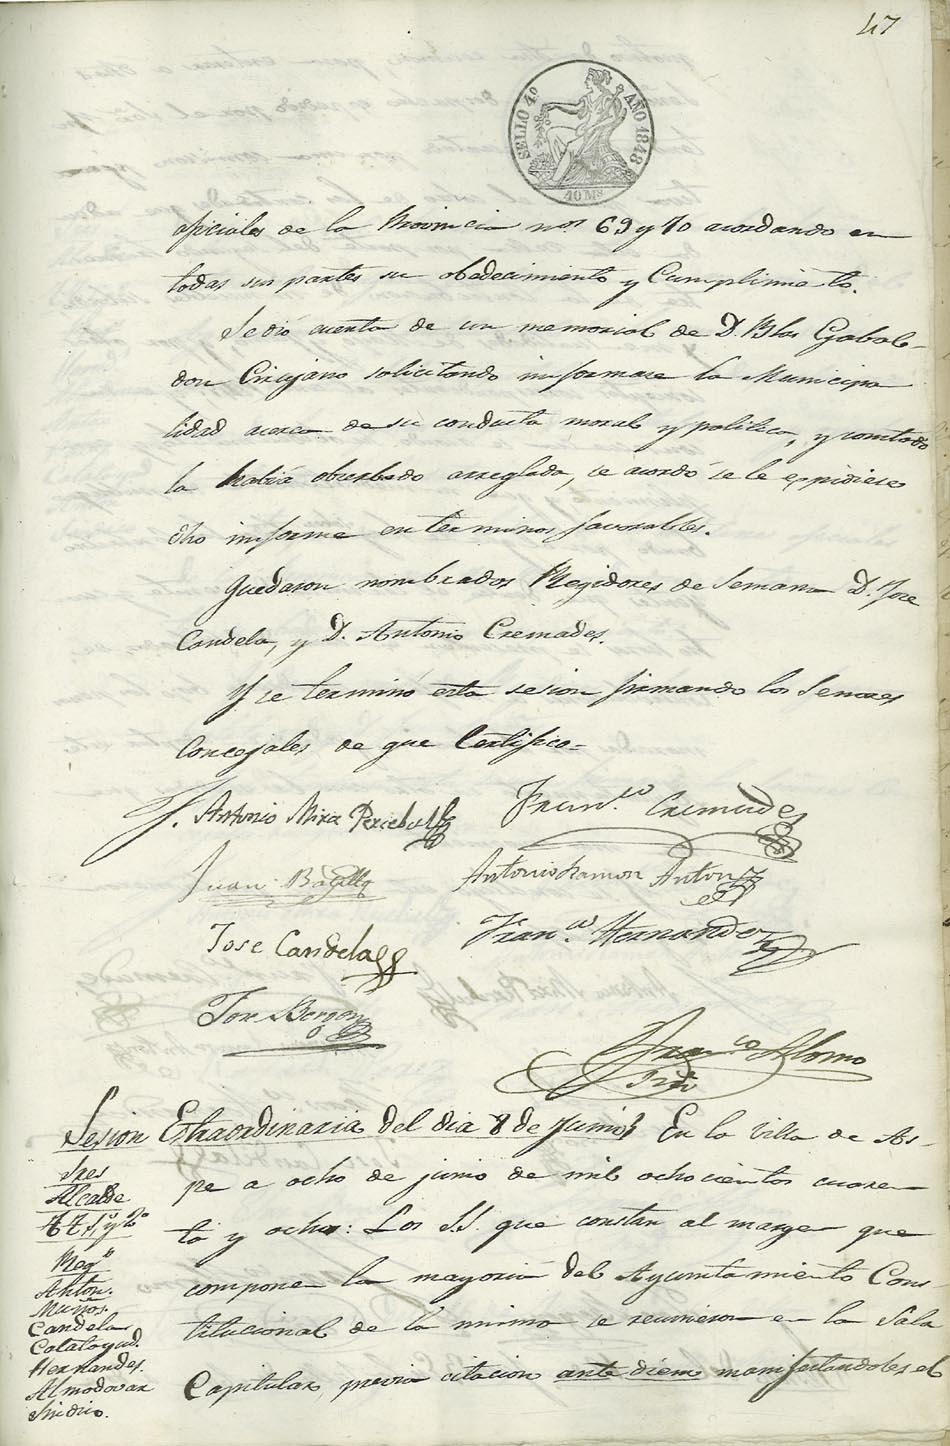 47
SELLO 4º AÑO 1848
40 Ms
oficiales de la Provincia nos 69 y 70 acordando en
todas sus partes su obedecimiento y Cumplimiento.
Se dió cuenta de un memorial de D. Blas Gabal-
don Cirujano solicitando informase la Municipa
lidad acerca de su conducta moral y politica, y
la habia obserbado arreglada, se acordó se le expidiese
dho informe en terminos favorables.
Quedaron nombrados Regidores de Semana D. Jose
Candela, y D. Antonio Cremades.
Y se terminó esta sesion firmando los Señores
Concejales de que Certifico=
Antonio Mira Perceball
Franco Cremades
Juan Botella
Antonio Ramon Anton
Jose Candela
Franco Hernandez
Jose
Franco Alonso
Srio
Sesion Extraordinaria del dia 8 de Junio En la Villa de As-
pe a ocho de junio de mil ochocientos cuaren
ta y ocho: Los SS. que constan al margen que
componen la mayoria del Ayuntamiento Cons
titucional de la misma se reunieron en la Sala
Capitular, previa citacion ante diem manifestandoles el
Sres
Alcalde
TT. 1º y 2º
Regs
Anton.
Muños.
Candela
Calatayud.
Hernandes.
Almodovar
Sindico.